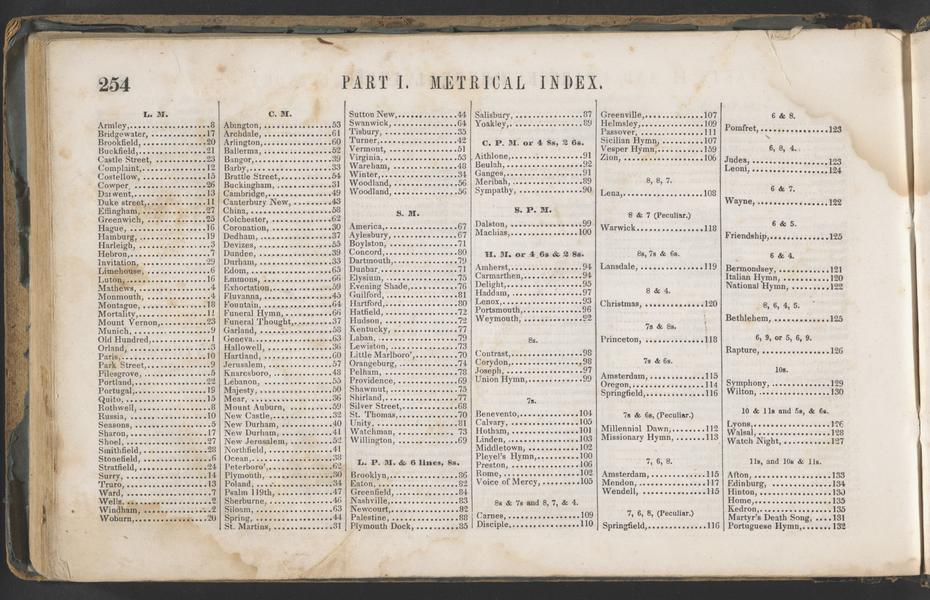 254
PART I. METRICAL INDEX.
L. M.
Armley, 8
Bridgewater, 17
Brookfield, 20
Buckfield, 21
Castle Street, 23
Complaint, 12
Costellow, 15
Cowper, 26
Darwent, 13
Duke street, 11
Effingham, 27
Greenwich, 25
Hague, 16
Hamburg, 19
Harleigh, 3
Hebron, 7
Invitation, 29
Limehouse, 6
Luton, 16
Mathews, 4
Monmouth, 4
Montague, 18
Mortality, 11
Mount Vernon, 23
Munich, 9
Old Hundred, 1
Orland, 3
Paris, 10
Park Street, 9
Pilesgrove, 5
Portland, 22
Portugal, 19
Quito, 15
Rothwell, 8
Russia, 10
Seasons, 5
Sharon, 17
Shoel, 27
Smithfield, 28
Stonefield, 6
Stratfield, 24
Surry, 14
Truro, 13
Ward, 7
Wells, 2
Windham, 2
Woburn, 20
C. M.
Abington, 53
Archdale, 61
Arlington, 60
Ballerma, 52
Bangor, 39
Barby, 33
Brattle Street, 54
Buckingham, 31
Cambridge, 49
Canterbury New, 43
China, 58
Colchester, 62
Coronation, 30
Dedham, 37
Devizes, 55
Dundee, 39
Durham, 33
Edom, 65
Emmons, 66
Exhortation, 59
Fluvanna, 45
Fountain, 64
Funeral Hymn, 66
Funeral Thought, 37
Garland, 58
Geneva, 63
Hallowell, 36
Hartland, 60
Jerusalem, 57
Knaresboro, 48
Lebanon, 55
Majesty, 50
Mear, 36
Mount Auburn, 59
New Castle, 32
New Durham, 40
New Durham, 41
New Jerusalem, 52
Northfield, 41
Ocean, 38
Peterboro', 62
Plymouth, 30
Poland, 34
Psalm 119th, 47
Sherburne, 46
Siloam, 63
Spring, 44
St. Martins, 31
Sutton New, 44
Swanwick, 64
Tisbury, 35
Turner, 42
Vermont, 51
Virginia, 53
Wareham, 48
Winter, 34
Woodland, 56
Woodland, 56
S. M.
America, 67
Aylesbury, 67
Boylston, 71
Concord, 80
Dartmouth, 79
Dunbar, 71
Elysium, 75
Evening Shade, 76
Guilford, 81
Hartford, 80
Hatfield, 72
Hudson, 72
Kentucky, 77
Laban, 79
Lewiston, 73
Little Marlboro', 70
Orangeburg, 74
Pelham, 78
Providence, 69
Shawmut, 75
Shirland, 77
Silver Street, 68
St. Thomas, 70
Unity, 81
Watchman, 73
Willington, 69
L. P. M. & 6 lines, 8s.
Brooklyn, 86
Eaton, 82
Greenfield, 84
Nashville, 83
Newcourt, 82
Palestine, 88
Plymouth Dock, 85
Salisbury, 87
Yoakley, 89
C. P. M. or 4 8s, 2 6s.
Aithlone, 91
Beulah, 92
Ganges, 91
Meribah, 89
Sympathy, 90
S. P. M.
Dalston, 99
Machias, 100
H. M. or 4 6s & 2 8s.
Amherst, 94
Carmarthen, 94
Delight, 95
Haddam, 97
Lenox, 93
Portsmouth, 96
Weymouth, 92
8s.
Contrast, 98
Corydon, 98
Joseph, 97
Union Hymn, 99
7s.
Benevento, 104
Calvary, 105
Hotham, 101
Linden, 103
Middletown, 102
Pleyel's Hymn, 100
Preston, 106
Rome, 102
Voice of Mercy, 105
8s & 7s and 8, 7, & 4.
Carnes, 109
Disciple, 110
Greenville, 107
Helmsley, 109
Passover, 111
Sicilian Hymn, 107
Vesper Hymn, 159
Zion, 106
8, 8, 7.
Lena, 108
8 & 7 (Peculiar.)
Warwick, 118
8s, 7s & 6s.
Lansdale, 119
8 & 4.
Christmas, 120
7s & 8s.
Princeton, 118
7s & 6s.
Amsterdam, 115
Oregon, 114
Springfield, 116
7s & 6s, (Peculiar.)
Millennial Dawn, 112
Missionary Hymn, 113
7, 6, 8.
Amsterdam, 115
Mendon, 117
Wendell, 115
7, 6, 8, (Peculiar.)
Springfield, 116
6 & 8.
Pomfret, 123
6, 8, 4.
Judea, 123
Leoni, 124
6 & 7.
Wayne, 122
6 & 5.
Friendship, 125
6 & 4.
Bermondsey, 121
Italian Hymn, 120
National Hymn, 122
8, 6, 4, 5.
Bethlehem, 125
6, 9, or 5, 6, 9.
Rapture, 126
10s.
Symphony, 129
Wilton, 130
10 & 11s and 5s, & 6s.
Lyons, 126
Walsal, 128
Watch Night, 127
11s, and 10s & 11s.
Afton, 133
Edinburg, 134
Hinton, 130
Home, 135
Kedron, 135
Martyr's Death Song, 131
Portuguese Hymn, 132